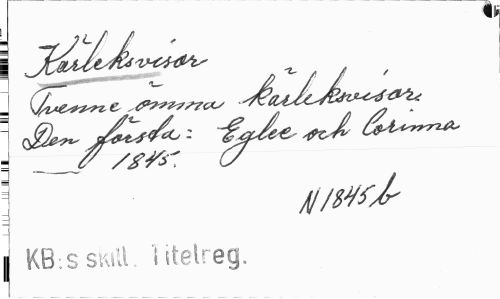 Kärleksvisor
Tvenne ömma kärleksvisor.
Den första: Eglee och Corinna
1845.
N 1845 b
KB:s skill. Titelreg.